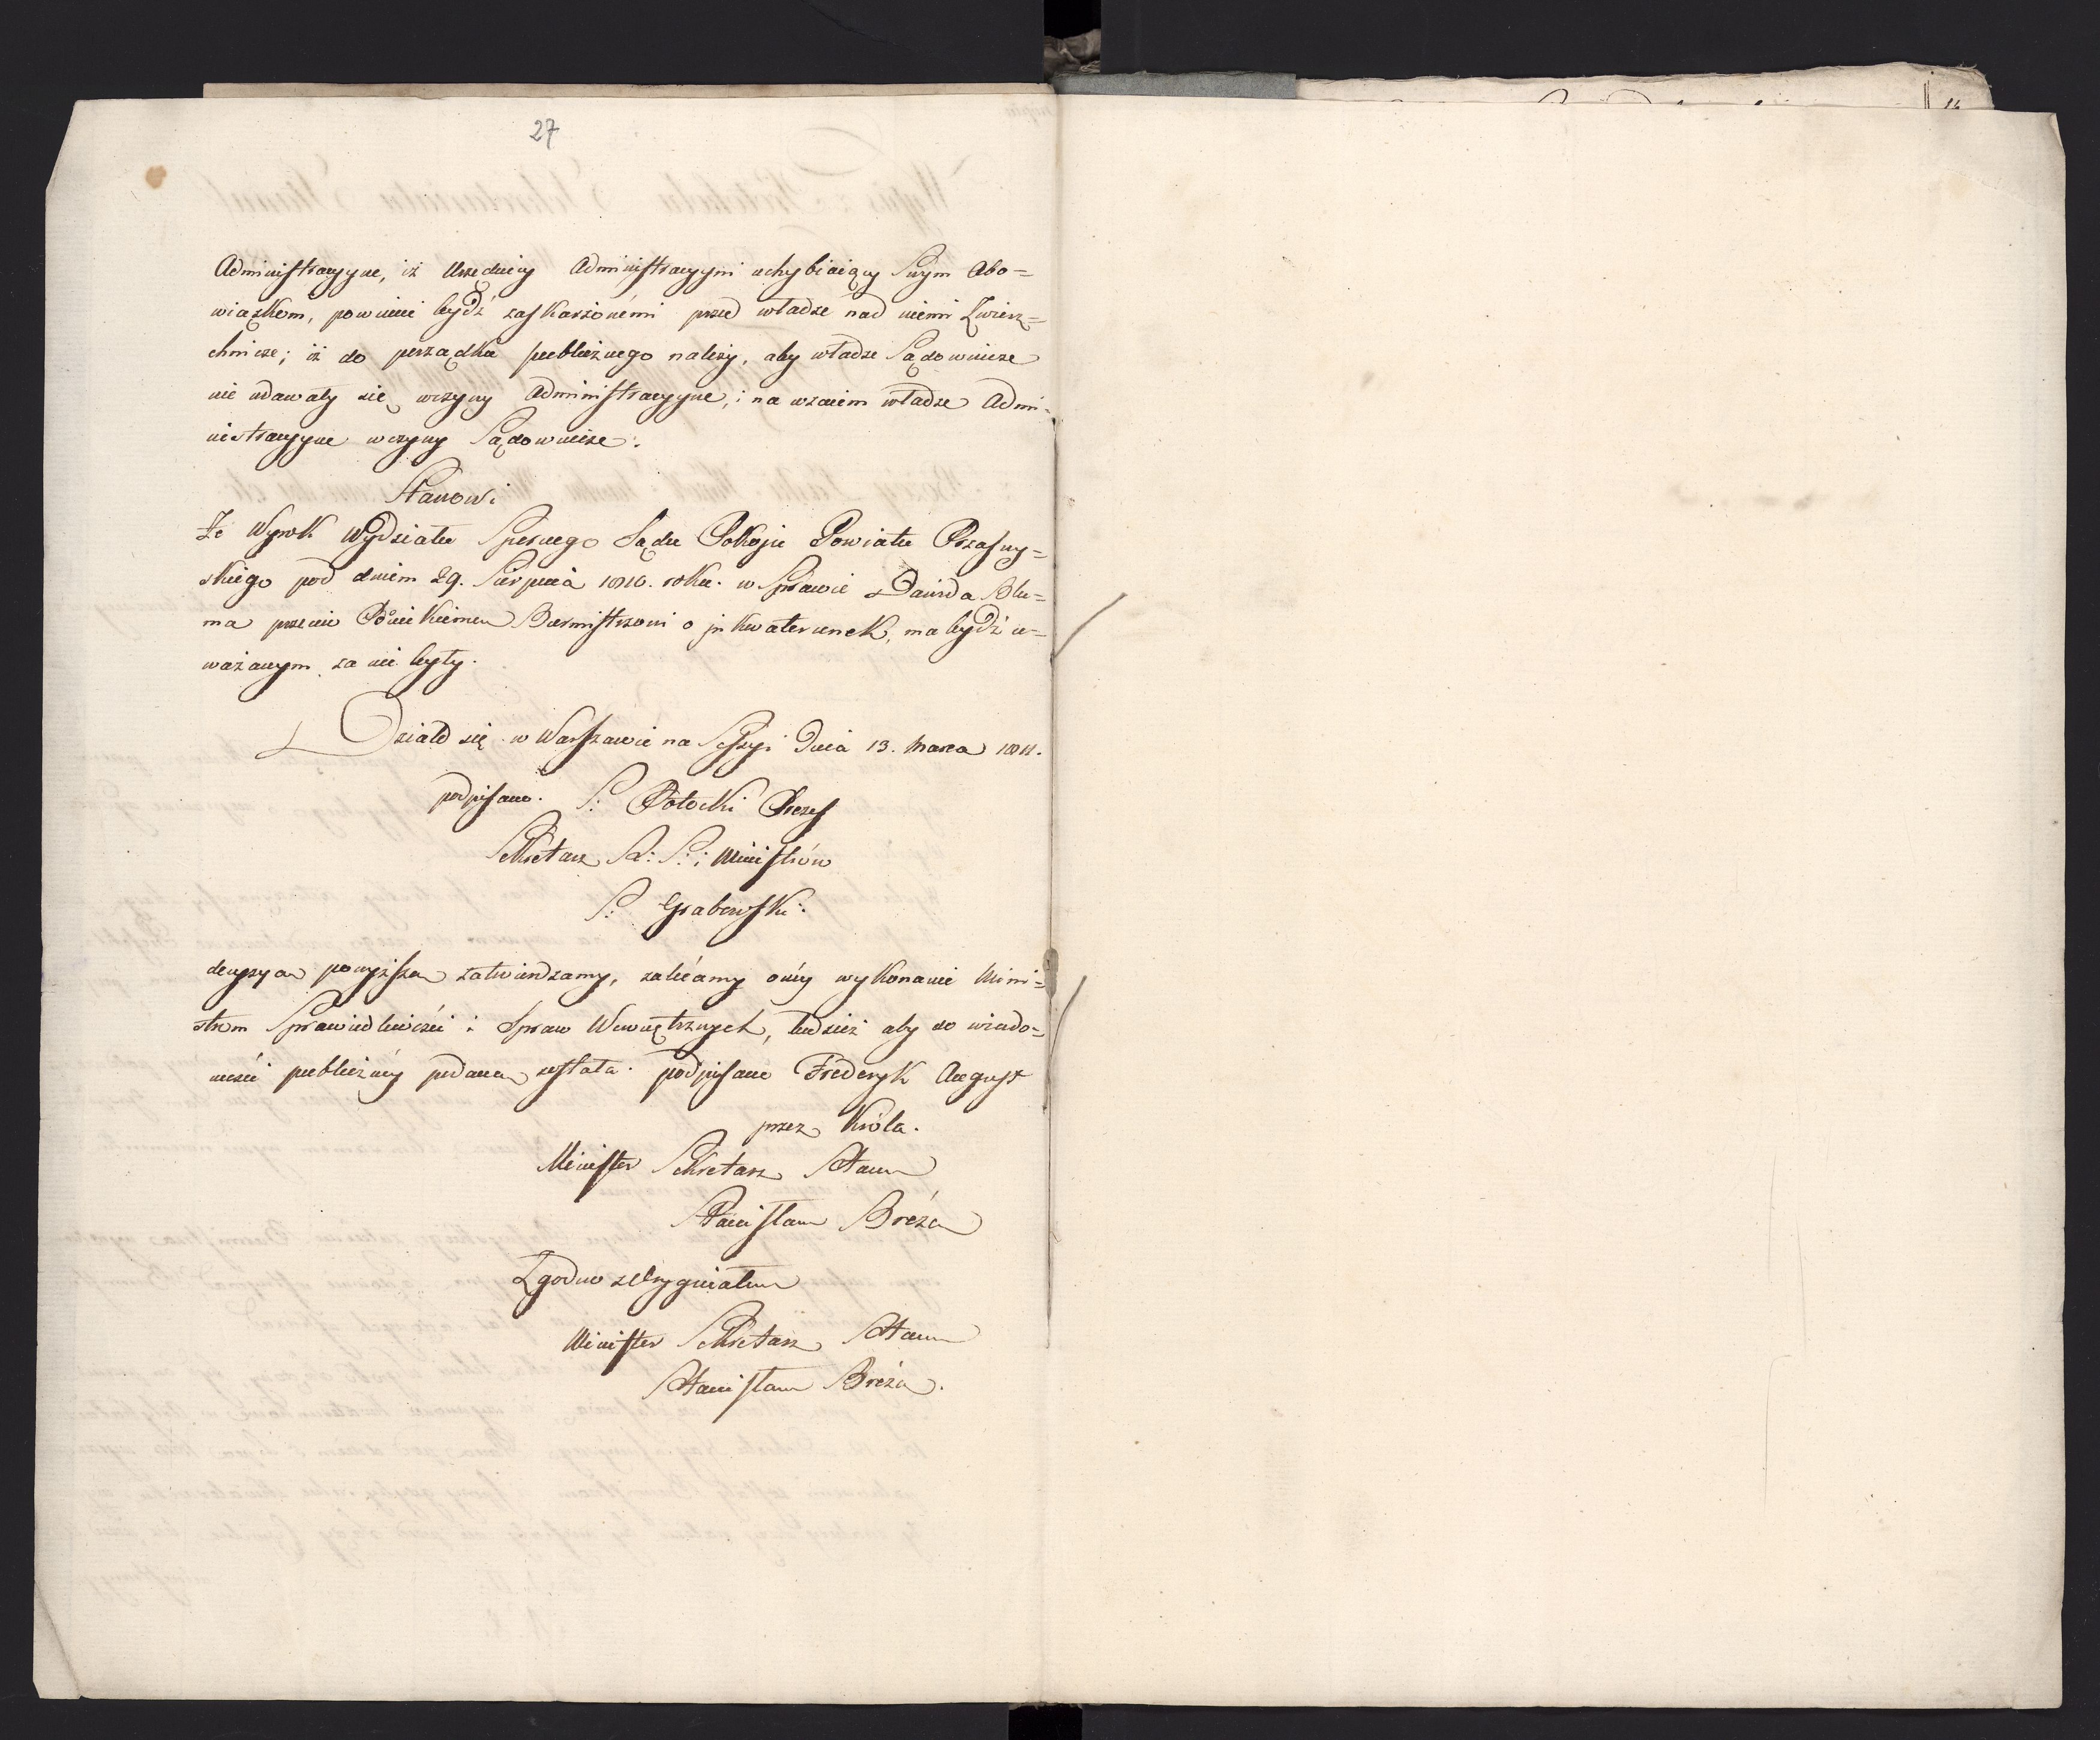 27
Administracyyne, iż Urzędnicy Administracyyni uchybiaiący Swym Obo=
wiązkom, powinni bydź zaskarżonémi przed władze nad niemi Zwierz=
chnicze; iż do porządku publicznego należy, aby władze Sądownicze
nie wdawały się w czyny Administracyyne, i na wzaiem władze Admi=
nistracyyne w czyny Sądownicze.
Stanowi
Że Wyrok Wydziału Spornego Sądu Pokoju Powiatu Przasny=
skiego pod dniem 29. Sierpnia 1810. roku. w Sprawie Dawida Blu=
ma przeciw Burmistrzowi o jnkwaterunek, ma bydź u=
ważanym za nie były.
Działo się w Warszawie na Sessyi Dnia 13. Marca 1811.
podpisano. S: Potocki Prezes
Sekretarz R: S: i Ministrów
S: Grabowski.
decyzya powyższa zatwierdzamy, zalécamy onéy wykonanie Mini=
strom Sprawiedliwości i Spraw Wewnętrznych, tudzież aby do wiado=
mości publicznéy podana została. podpisano Frederyk August
przez Króla.
Minister Sekretarz Stanu
Stanisław Bréza
Zgodno z Oryginałem
Minister Sekretarz Stanu
Stanisław Bréza.